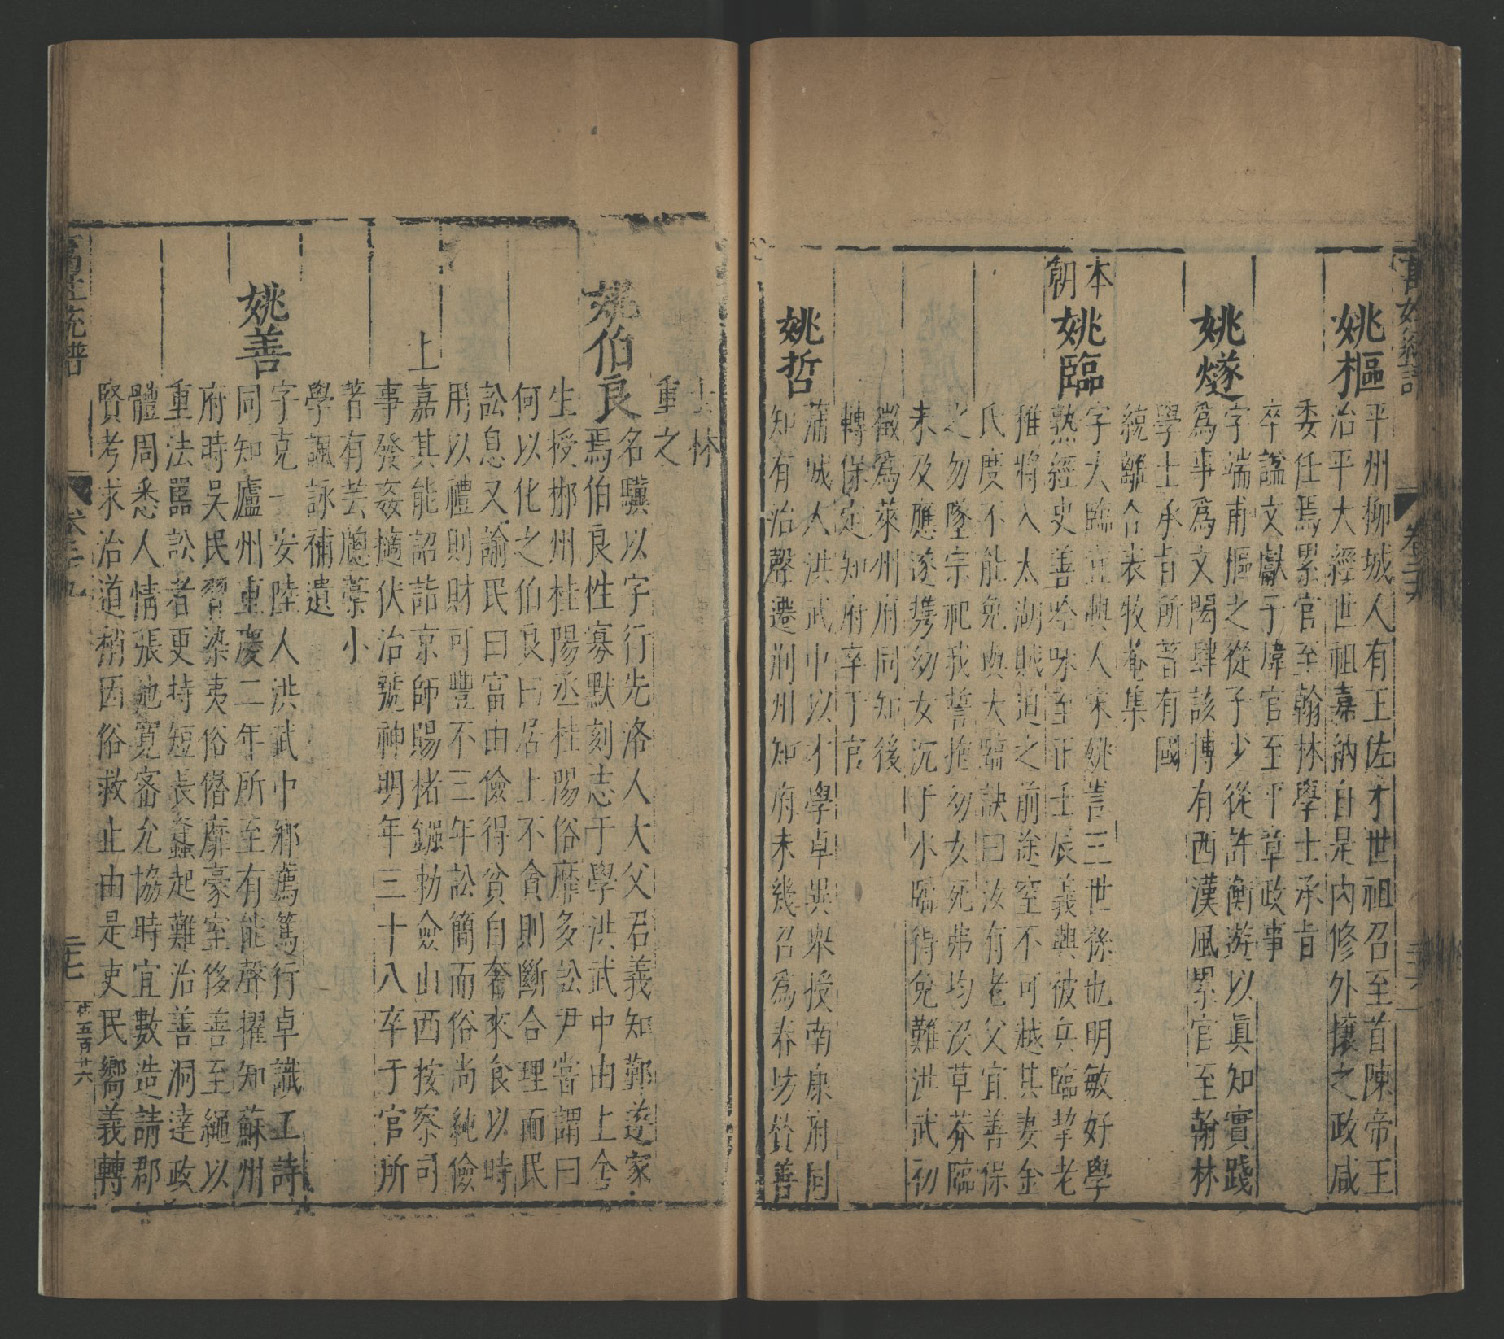 萬姓統譜
卷二十九
姚樞
平州柳城人有王佐才世祖召至首陳帝王
治平大經世祖嘉納自是內修外攘之政咸
委任焉累官至翰林學士承旨
卒諡文獻子煒官至平章政事
姚燧
字端甫樞之從子少從許衡游以眞知實踐
爲事爲文閎肆該博有西漢風累官至翰林
學士承旨所著有國
統離合表牧菴集
本朝
姚臨
字大臨宜興人宋姚訔三世孫也明敏好學
熟經史善吟咏至正壬辰義興被兵臨挈老
稚將入太湖賊迫之前途窒不可越其妻金
氏度不能免與大臨訣曰汝有老父宜善保
之勿墜宗祀我誓抱幼女死弗均沒草莽臨
未及應遂携幼女沉于小臨得免難洪武初
徵爲萊州府同知後
轉保定知府卒于官
姚哲
蒲城人洪武中以才學卓異舉授南康府同
知有治聲遷荊州知府未幾召爲春坊贊善
士林
重之
姚伯良
名驥以字行先洛人大父君義知鄞遂家
焉伯良性寡默刻志于學洪武中由上舍
生授郴州桂陽丞桂陽俗靡多訟尹嘗謂曰
何以化之伯良曰居上不貪則斷合理而民
訟息又諭民曰富由儉得貧自奢來食以時
用以禮則財可豐不三年訟簡而俗尚純儉
上
嘉其能詔詣京師賜楮鏹勑僉山西按察司
事發姦擿伏治號神明年三十八卒于官所
著有芸牕藁小
學諷詠補遺
姚善
字克一安陸人洪武中鄉薦篤行卓識工詩
同知廬州重慶二年所至有能聲擢知蘇州
府時吳民習染夷俗僭靡豪室後善至繩以
重法嚚訟者更持短長蠭起難治善洞達政
體周悉人情張弛寬審允協時宜數造請郡
賢考求治道稍因俗救止由是吏民嚮義轉